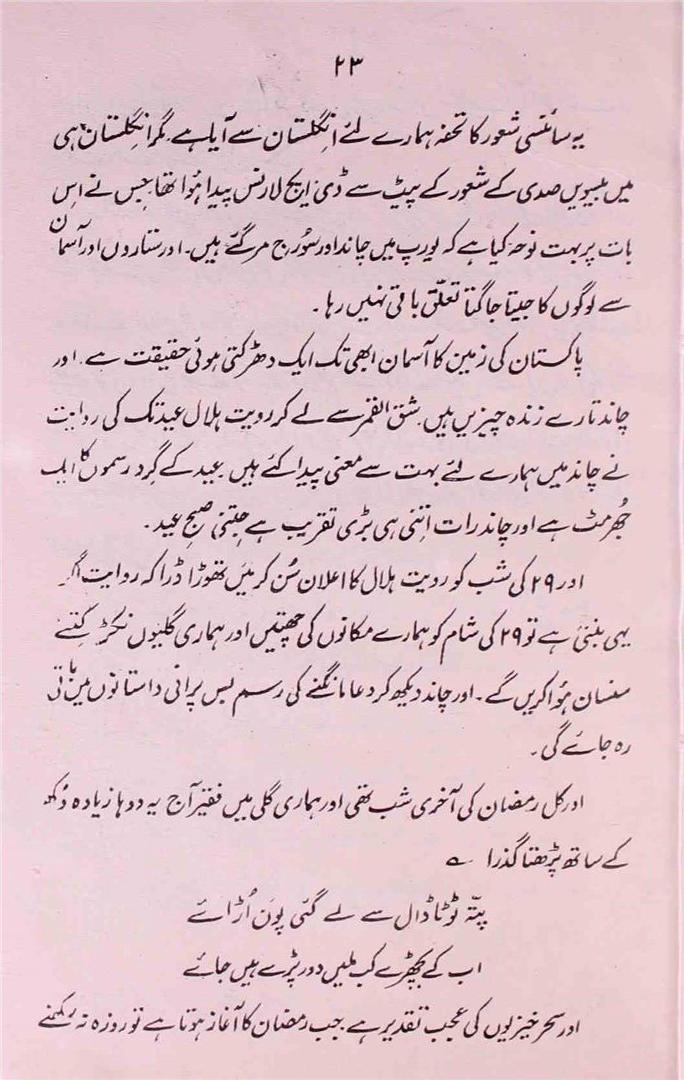 ۲۳
یہ سائنسی شعور کا تحفہ ہمارے لئے انگلستان سے آیا ہے، مگر انگلستان ہی
میں بیسویں صدی کے شعور کے پیٹ سے ڈی ایچ لارنس پیدا ہُوا تھا جس نے اس
بات پر بہت نوحہ کیا ہے کہ یورپ میں چاند اور سُورج مر گئے ہیں۔ اور ستاروں اور آسمان
سے لوگوں کا جیتا جاگتا تعلّق باقی نہیں رہا۔
پاکستان کی زمین کا آسمان ابھی تک ایک دھڑکتی ہوئی حقیقت ہے۔ اور
چاند تارے زندہ چیزیں ہیں۔ شق القمر سے لے کر رویت ہلال عید تک کی روایت
نے چاند میں ہمارے لئے بہت سے معنی پیدا کئے ہیں۔ عید کے گرد رسموں کا ایک
جُھرمٹ ہے اور چاند رات اتنی ہی بڑی تقریب ہے جتنی صبحِ عید۔
اور ۲۹ کی شب کو رویت ہلال کا اعلان سُن کر میں تھوڑا ڈرا کہ روایت اگر
یہی بنتی ہے تو ۲۹ کی شام کو ہمارے مکانوں کی چھتیں اور ہماری گلیوں نکڑ کتنے
سنسان ہُوا کریں گے۔ اور چاند دیکھ کر دعا مانگنے کی رسم بس پرانی داستانوں میں باقی
رہ جائے گی۔
اور کل رمضان کی آخری شب تھی اور ہماری گلی میں فقیر آج یہ دوہا زیادہ دُکھ
کے ساتھ پڑھتا گذرا ؎
پتّہ ٹوٹا ڈال سے لے گئی پون اُڑائے
اب کے بچھڑے کب ملیں دور پڑے ہیں جائے
اور سحر خیزیوں کی عجب تقدیر ہے۔ جب رمضان کا آغاز ہوتا ہے تو روزہ نہ رکھنے